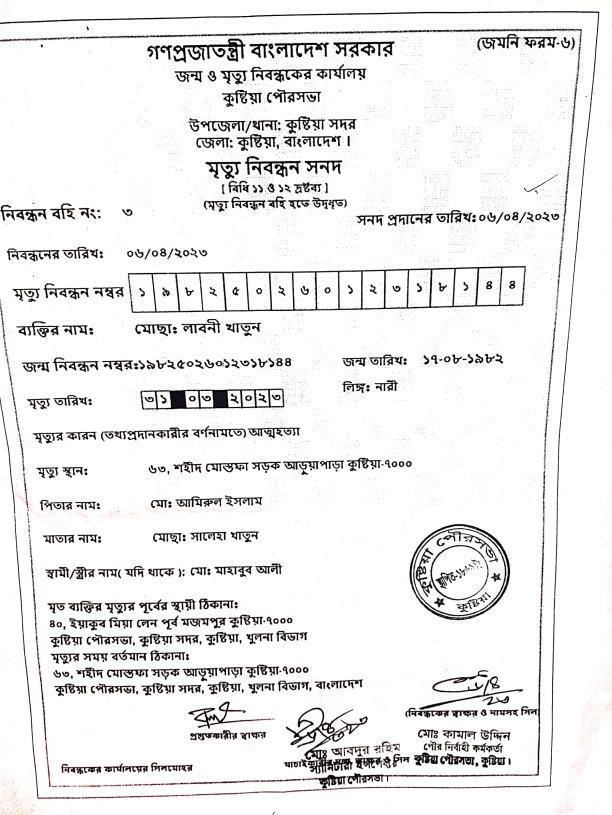 (জমনি ফরম-৬)
গণপ্রজাতন্ত্রী বাংলাদেশ সরকার
জন্ম ও মৃত্যু নিবন্ধকের কার্যালয়
কুষ্টিয়া পৌরসভা
উপজেলা/থানা: কুষ্টিয়া সদর
জেলা: কুষ্টিয়া, বাংলাদেশ।
মৃত্যু নিবন্ধন সনদ
[ বিধি ১১ ও ১২ দ্রষ্টব্য ]
(মৃত্যু নিবন্ধন বহি হতে উদ্ধৃত)
নিবন্ধন বহি নং: ৩
সনদ প্রদানের তারিখ: ০৬/০৪/২০২৩
নিবন্ধনের তারিখ: ০৬/০৪/২০২৩
মৃত্যু নিবন্ধন নম্বর ১৯৮২৫০২৬০১২৩১৮১৪৪
ব্যক্তির নাম: মোছা: লাবনী খাতুন
জন্ম নিবন্ধন নম্বর:১৯৮২৫০২৬০১২৩১৮১৪৪ জন্ম তারিখ: ১৭-০৮-১৯৮২
মৃত্যু তারিখ: ৩১ ০৩ ২০২৩ লিঙ্গ: নারী
মৃত্যুর কারন (তথ্যপ্রদানকারীর বর্ণনামতে) আত্মহত্যা
মৃত্যু স্থান: ৬৩, শহীদ মোস্তফা সড়ক আড়ুয়াপাড়া কুষ্টিয়া-৭০০০
পিতার নাম: মো: আমিরুল ইসলাম
মাতার নাম: মোছা: সালেহা খাতুন
স্বামী/স্ত্রীর নাম( যদি থাকে ): মো: মাহাবুব আলী
মৃত ব্যক্তির মৃত্যুর পূর্বের স্থায়ী ঠিকানা:
৪০, ইয়াকুব মিয়া লেন পূর্ব মজমপুর কুষ্টিয়া-৭০০০
কুষ্টিয়া পৌরসভা, কুষ্টিয়া সদর, কুষ্টিয়া, খুলনা বিভাগ
মৃত্যুর সময় বর্তমান ঠিকানা:
৬৩, শহীদ মোস্তফা সড়ক আড়ুয়াপাড়া কুষ্টিয়া-৭০০০
কুষ্টিয়া পৌরসভা, কুষ্টিয়া সদর, কুষ্টিয়া, খুলনা বিভাগ, বাংলাদেশ
কুষ্টিয়া পৌরসভা
কুষ্টিয়া
প্রস্তুতকারীর স্বাক্ষর
(নিবন্ধকের স্বাক্ষর ও নামসহ সিল)
মোঃ আবদুর রহিম
কুষ্টিয়া পৌরসভা।
মোঃ কামাল উদ্দিন
পৌর নির্বাহী কর্মকর্তা
কুষ্টিয়া পৌরসভা, কুষ্টিয়া।
নিবন্ধকের কার্যালয়ের সিলমোহর